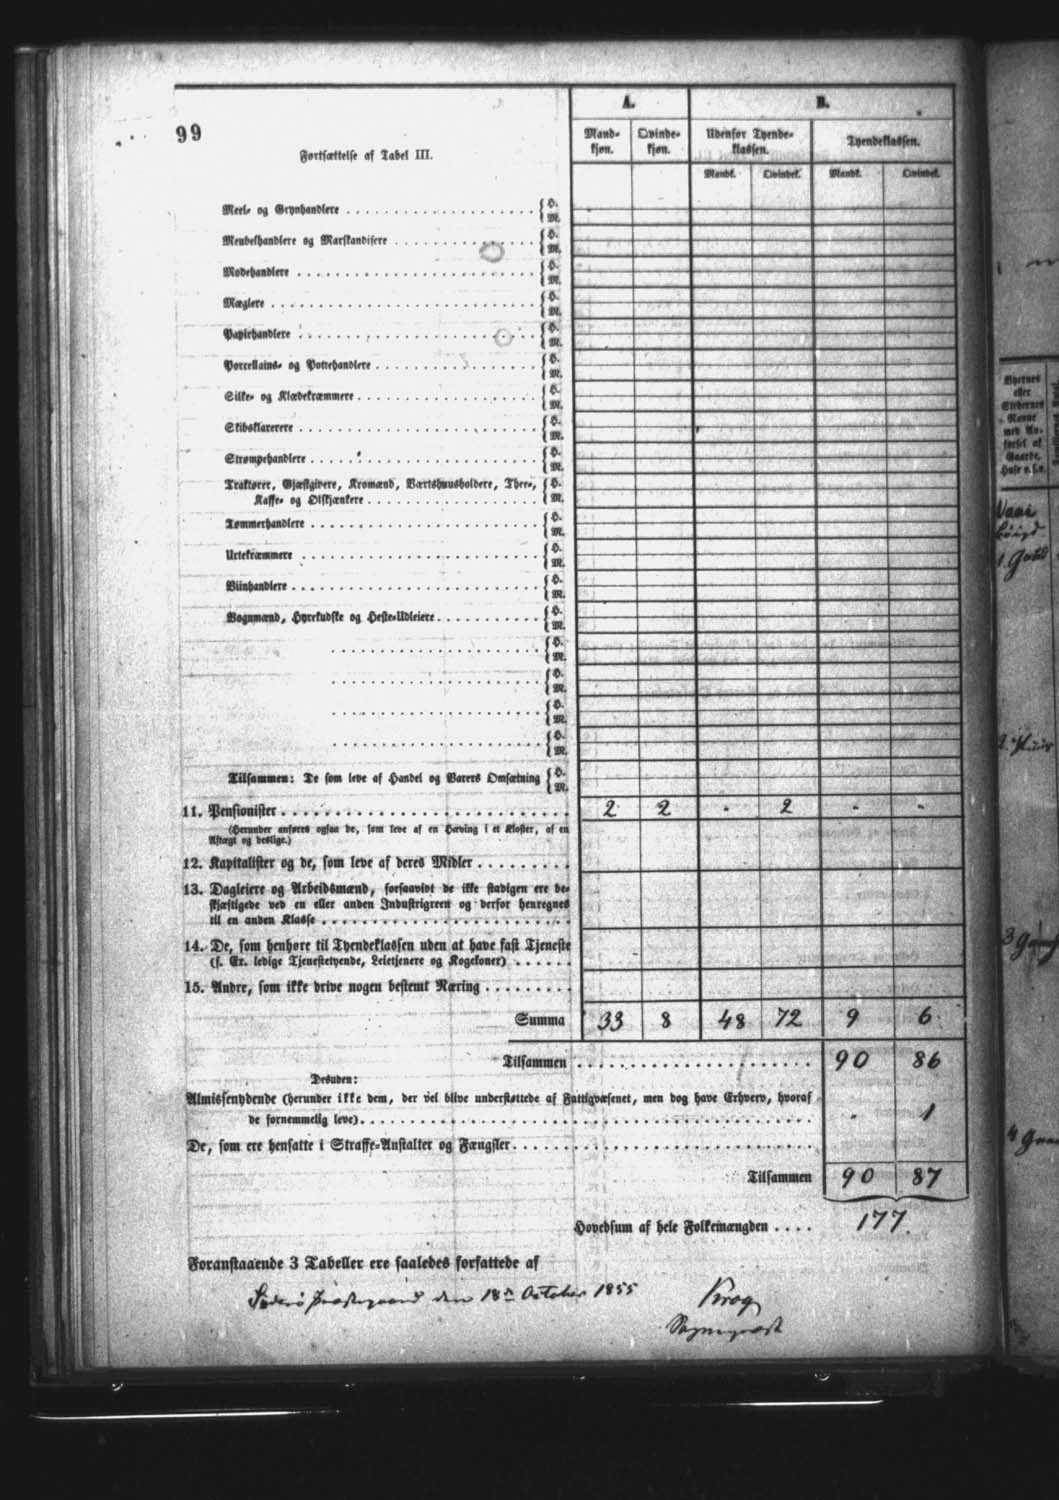 99
Fortsættelse af Tabel III.
A.
B.
Mand-
kjøn.
Qvinde-
kjøn.
Udenfor Tyende-
klassen.
Tyendeklassen.
Mandk.
Qvindek.
Mandk.
Qvindek.
Meel- og Grynhandlere . . . { H.
M.
Meubelhandlere og Marskandisere . . . { H.
M.
Modehandlere . . . { H.
M.
Mæglere . . . { H.
M.
Papirhandlere . . . { H.
M.
Porcellains- og Pottehandlere . . . { H.
M.
Silke- og Klædekræmmere . . . { H.
M.
Skibsklarerere . . . { H.
M.
Strømpehandlere . . . { H.
M.
Traktører, Gjæstgivere, Kromænd, Værtshuusholdere, Thee-, { H.
Kaffe- og Ølskjænkere . . . M.
Tømmerhandlere . . . { H.
M.
Urtekræmmere . . . { H.
M.
Viinhandlere . . . { H.
M.
Vognmænd, Hyrekudske og Heste-Udleiere . . . { H.
M.
. . . { H.
M.
. . . { H.
M.
. . . { H.
M.
. . . { H.
M.
Tilsammen: De som leve af Handel og Varers Omsætning { H.
M.
11. Pensionister . . . 2 2 - 2 - -
(Herunder anføres ogsaa de, som leve af en Hæving i et Kloster, af en
Aftægt og deslige.)
12. Kapitalister og de, som leve af deres Midler . . .
13. Dagleiere og Arbeidsmænd, forsaavidt de ikke stadigen ere be-
skjæftigede ved en eller anden Industrigreen og derfor henregnes
til en anden Klasse . . .
14. De, som henhøre til Tyendeklassen uden at have fast Tjeneste
(f. Ex. ledige Tjenestetyende, Leietjenere og Kogekoner) . . .
15. Andre, som ikke drive nogen bestemt Næring . . .
Summa 33 8 48 72 9 6
Tilsammen . . . 90 86
Desuden:
Almissenydende (herunder ikke dem, der vel blive understøttede af Fattigvæsenet, men dog have Erhverv, hvoraf
de fornemmelig leve) . . . - 1
De, som ere hensatte i Straffe-Anstalter og Fængsler . . .
Tilsammen 90 87
Hovedsum af hele Folkemængden . . . . 177.
Foranstaaende 3 Tabeller ere saaledes forfattede af
Præstegaard den 18n October 1855
Krog
Sognepræst
Byernes
eller
Stedernes
Navne
med An-
førsel af
Gaarde,
Huse o.s.v.
1. Gaard
2. Huus
3 Gaard
4 Gaard